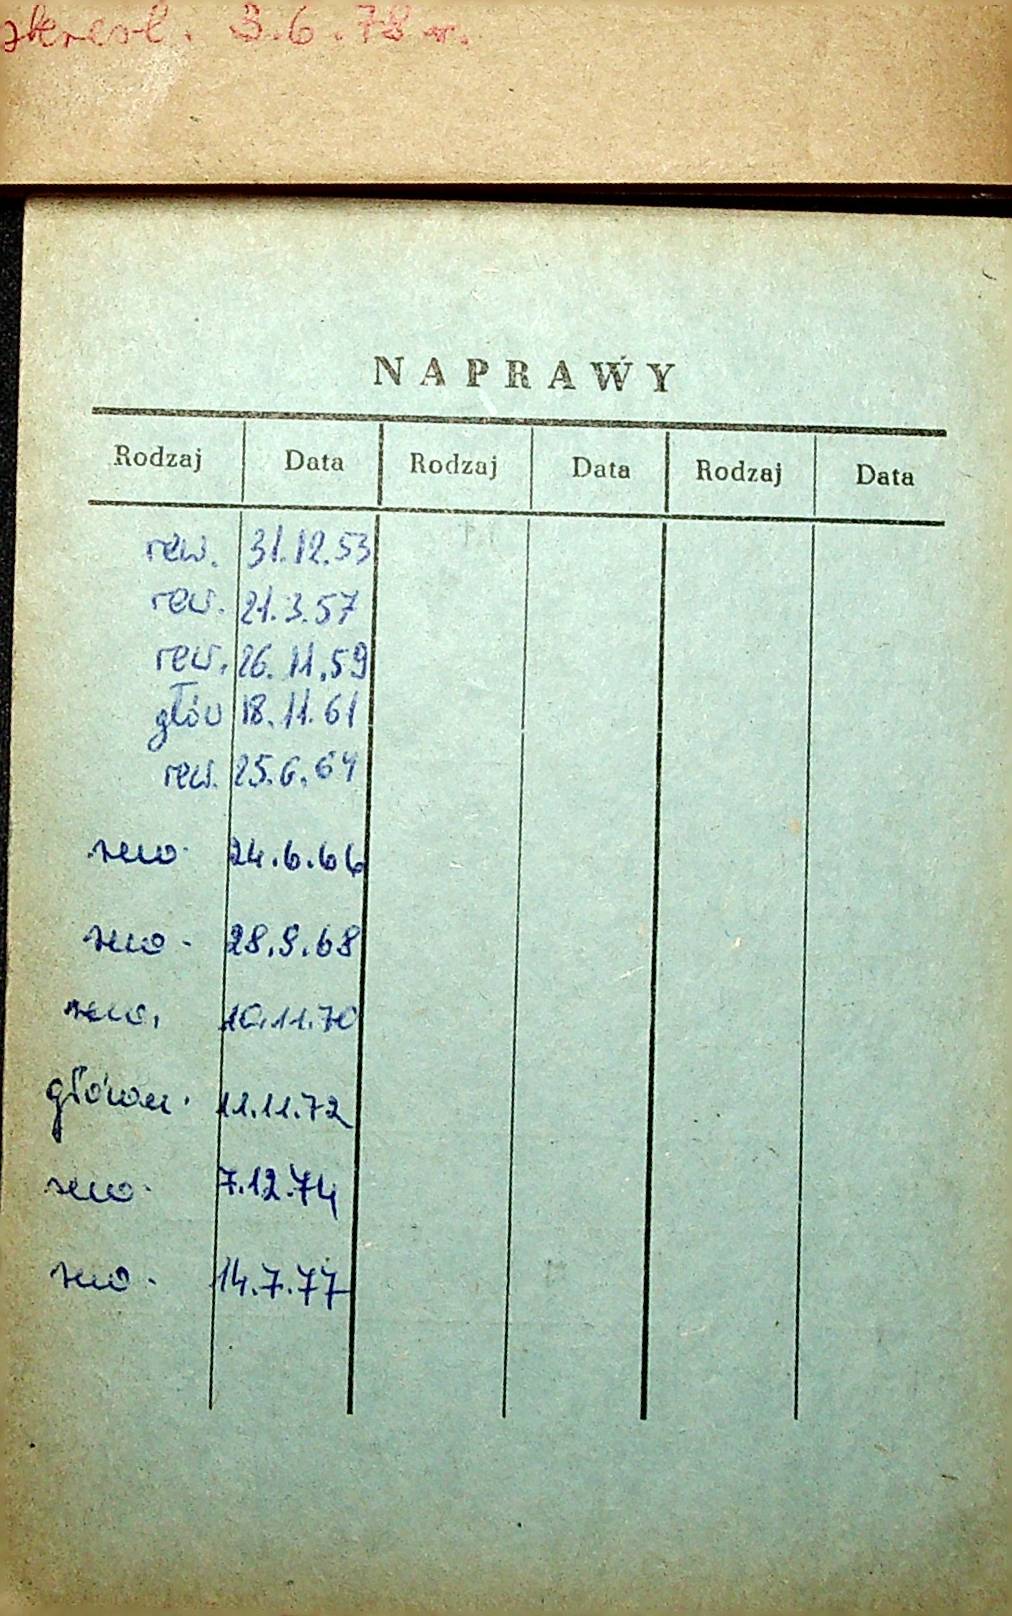 skreśl. 3.6.78 r.
NAPRAWY
Rodzaj Data Rodzaj Data Rodzaj Data
rew. 31.12.53
rew. 21.3.57
rew. 26.11.59
głów 18.11.61
rew. 25.6.64
rew. 24.6.66
rew. 28.9.68
rew. 10.11.70
główn. 11.11.72
rew. 7.12.74
rew. 14.7.77